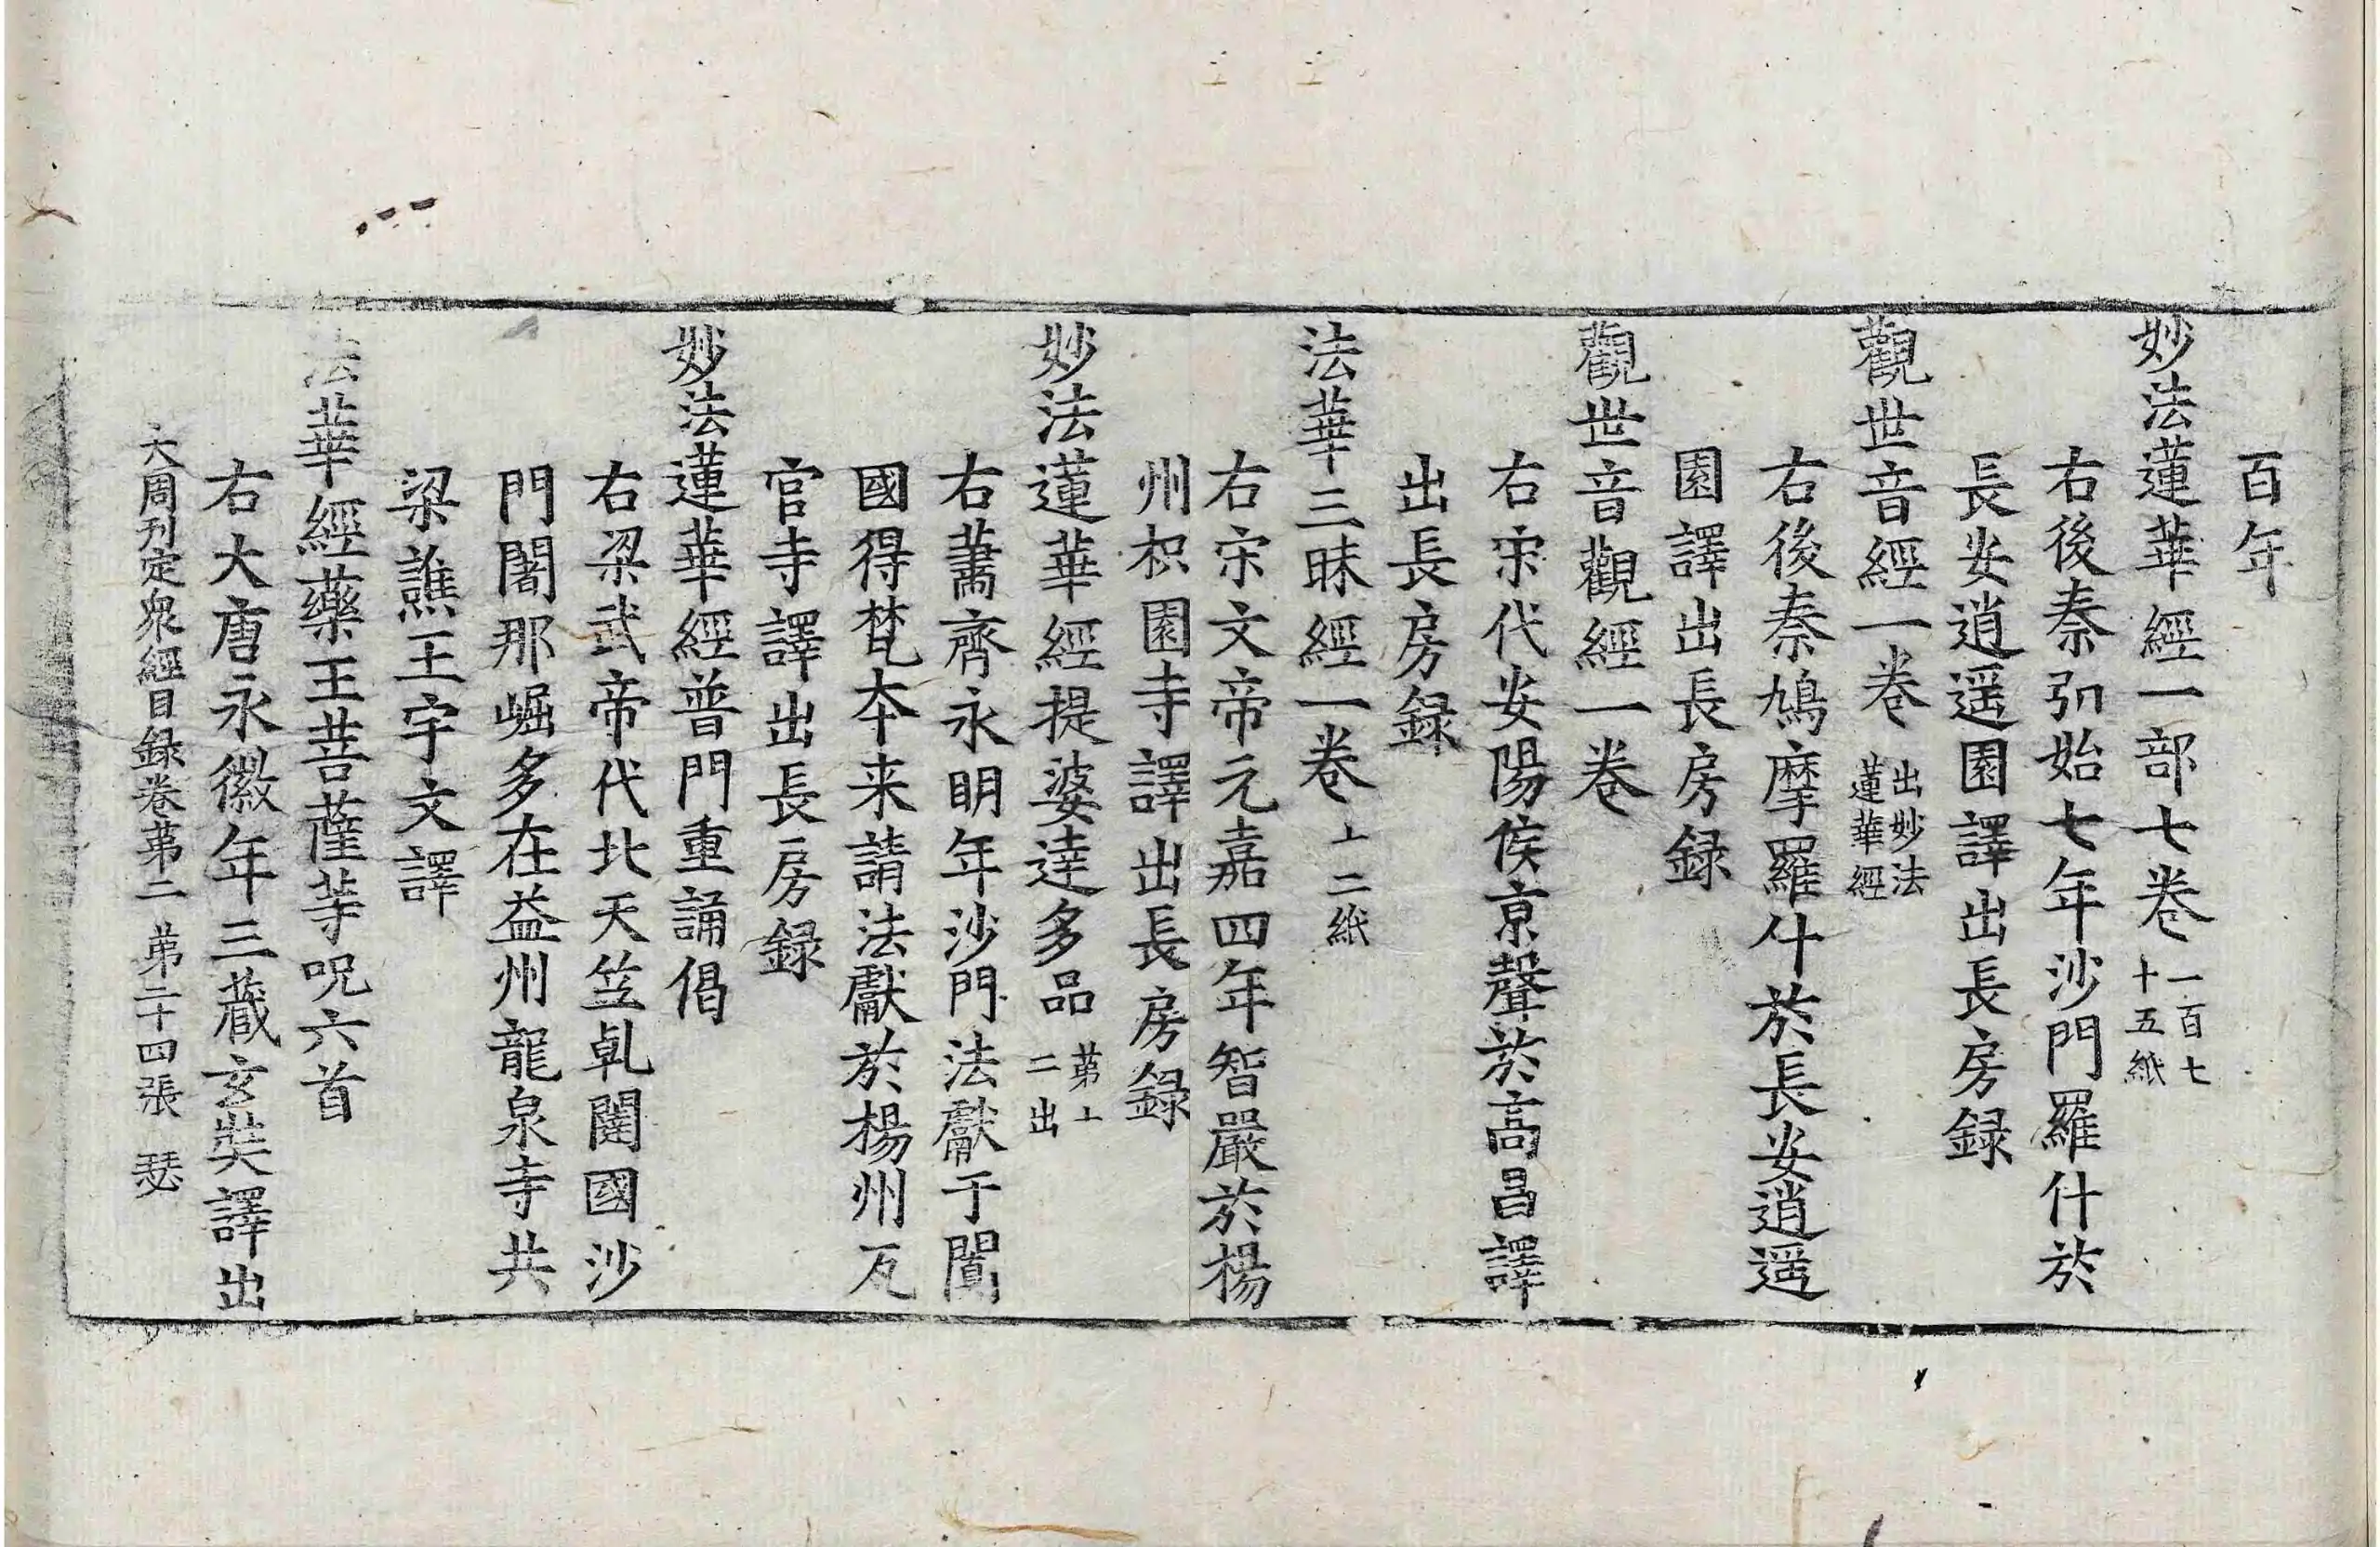 百年
妙法蓮華經一部七卷一百七十五紙
右後秦弘始七年沙門羅什於
長安逍遥園譯出長房録
觀世音經一卷出妙法蓮華經
右後秦鳩摩羅什於長安逍遥
園譯出長房録
觀世音觀經一卷
右宋代安陽侯京聲於高昌譯
出長房録
法華三昧經一卷上二紙
右宋文帝元嘉四年智嚴於楊
州枳園寺譯出長房録
妙法蓮華經提婆達多品第十二出
右蕭齊永明年沙門法獻于闐
國得梵本来請法獻於楊州瓦
官寺譯出長房録
妙法蓮華經普門重誦偈
右梁武帝代北天竺乹闥國沙
門闍那崛多在益州龍泉寺共
梁譙王宇文譯
法華經藥王菩薩等呪六首
右大唐永徽年三藏玄奘譯出
大周刊定衆經目録卷苐二 苐二十四張 瑟